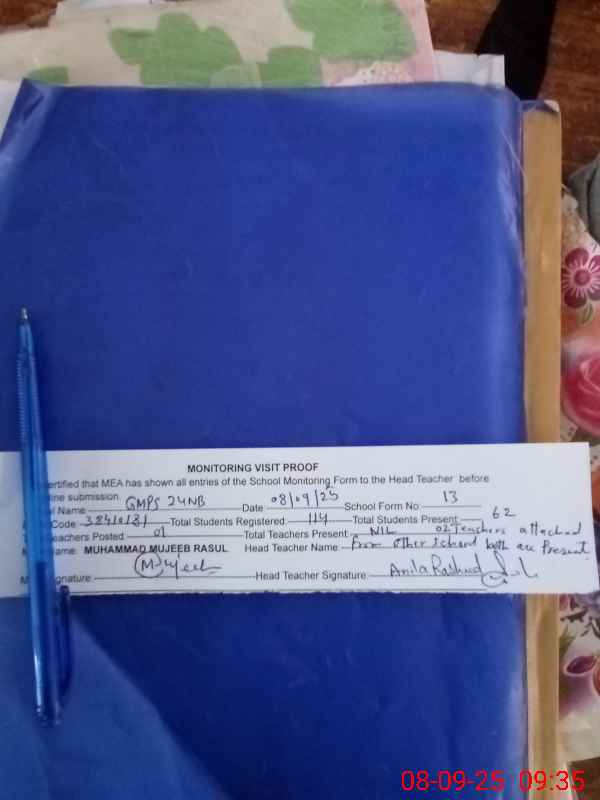 MONITORING VISIT PROOF
ertified that MEA has shown all entries of the School Monitoring Form to the Head Teacher before
line submission.
l Name GMPS 24NB Date 08/09/25 School Form No 13
Code Total Students Registered 114 Total Students Present 62
eachers Posted 01 Total Teachers Present NIL 02 Teachers attached
Name: MUHAMMAD MUJEEB RASUL Head Teacher Name: from other school both are Present
ignature: Mujeeb Head Teacher Signature: Anila Rashid
08-09-25 09:35